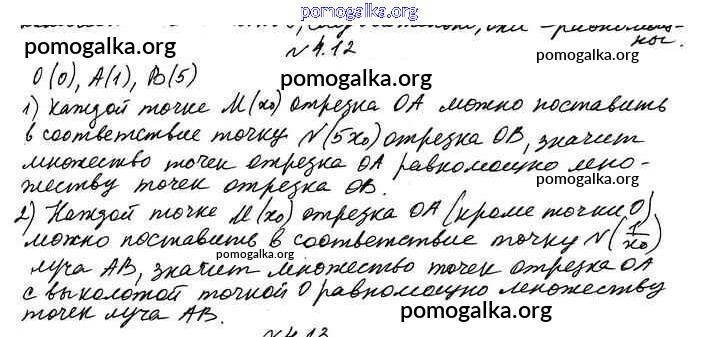 pomogalka.org
, они - равномощ-
ны.
pomogalka.org
pomogalka.org
N4.12
pomogalka.org
O(0), A(1), B(5)
1) Каждой точке M(x₀) отрезка OA можно поставить
в соответствие точку N(5x₀) отрезка OB, значит
множество точек отрезка OA равномощно мно-
жеству точек отрезка OB.
pomogalka.org
pomogalka.org
pomogalka.org
2) Каждой точке M(x₀) отрезка OA (кроме точки O)
можно поставить в соответствие точку N(1/x₀)
pomogalka.org
pomogalka.org
луча AB, значит множество точек отрезка OA
с выколотой точкой O равномощно множеству
точек луча AB.
pomogalka.org
pomogalka.org
N4.13